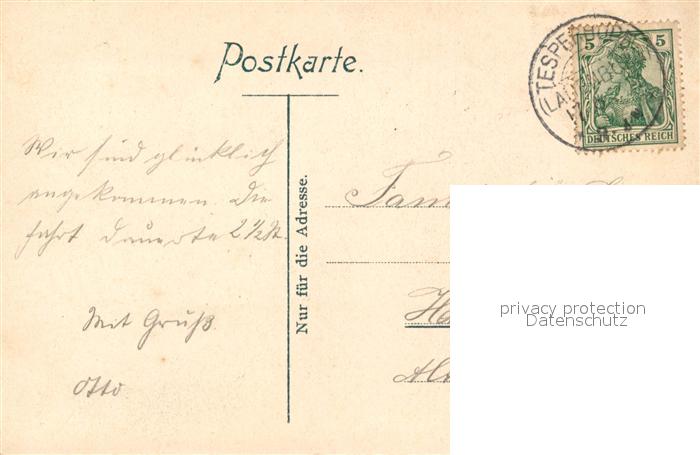 Postkarte.
TESPERHUDE
(LAUENBURG)
5 5
DEUTSCHES REICH
Wir sind glücklich
angekommen. Die
Fahrt dauerte 2 1/2 St.
Mit Gruß
Otto
Nur für die Adresse.
Fam
H
Al
privacy protection
Datenschutz